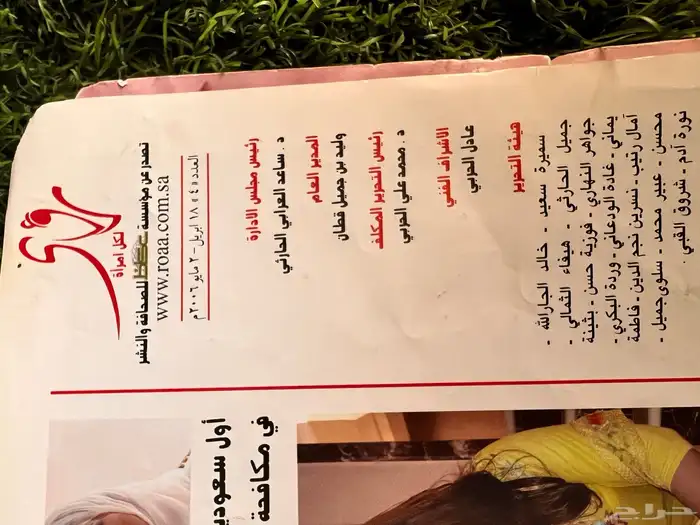 رؤى
لكل امرأة
تصدر عن مؤسسة للصحافة والنشر
www.roaa.com.sa
العدد «٤» ١٨ ابريل - ٢ مايو ٢٠٠٦م
رئيس مجلس الادارة
د . ساعد العرابي الحارثي
المدير العام
وليد بن جميل قطان
رئيس التحرير المكلف
د . محمد علي الحربي
الاشراف الفني
عادل الحربي
هيئة التحرير
سميرة سعيد - خالد الجارالله -
جميل الحارثي - هيفاء الثمالي -
جواهر النهاري - فوزية حسن - بثينة
يماني - غادة الودعاني - وردة البكري -
آمال رتيب - نسرين نجم الدين - فاطمة
محسن - عبير محمد - سلوى جميل -
نورة آدم - شروق القبي
أول سعودي
في مكافحة
حراج